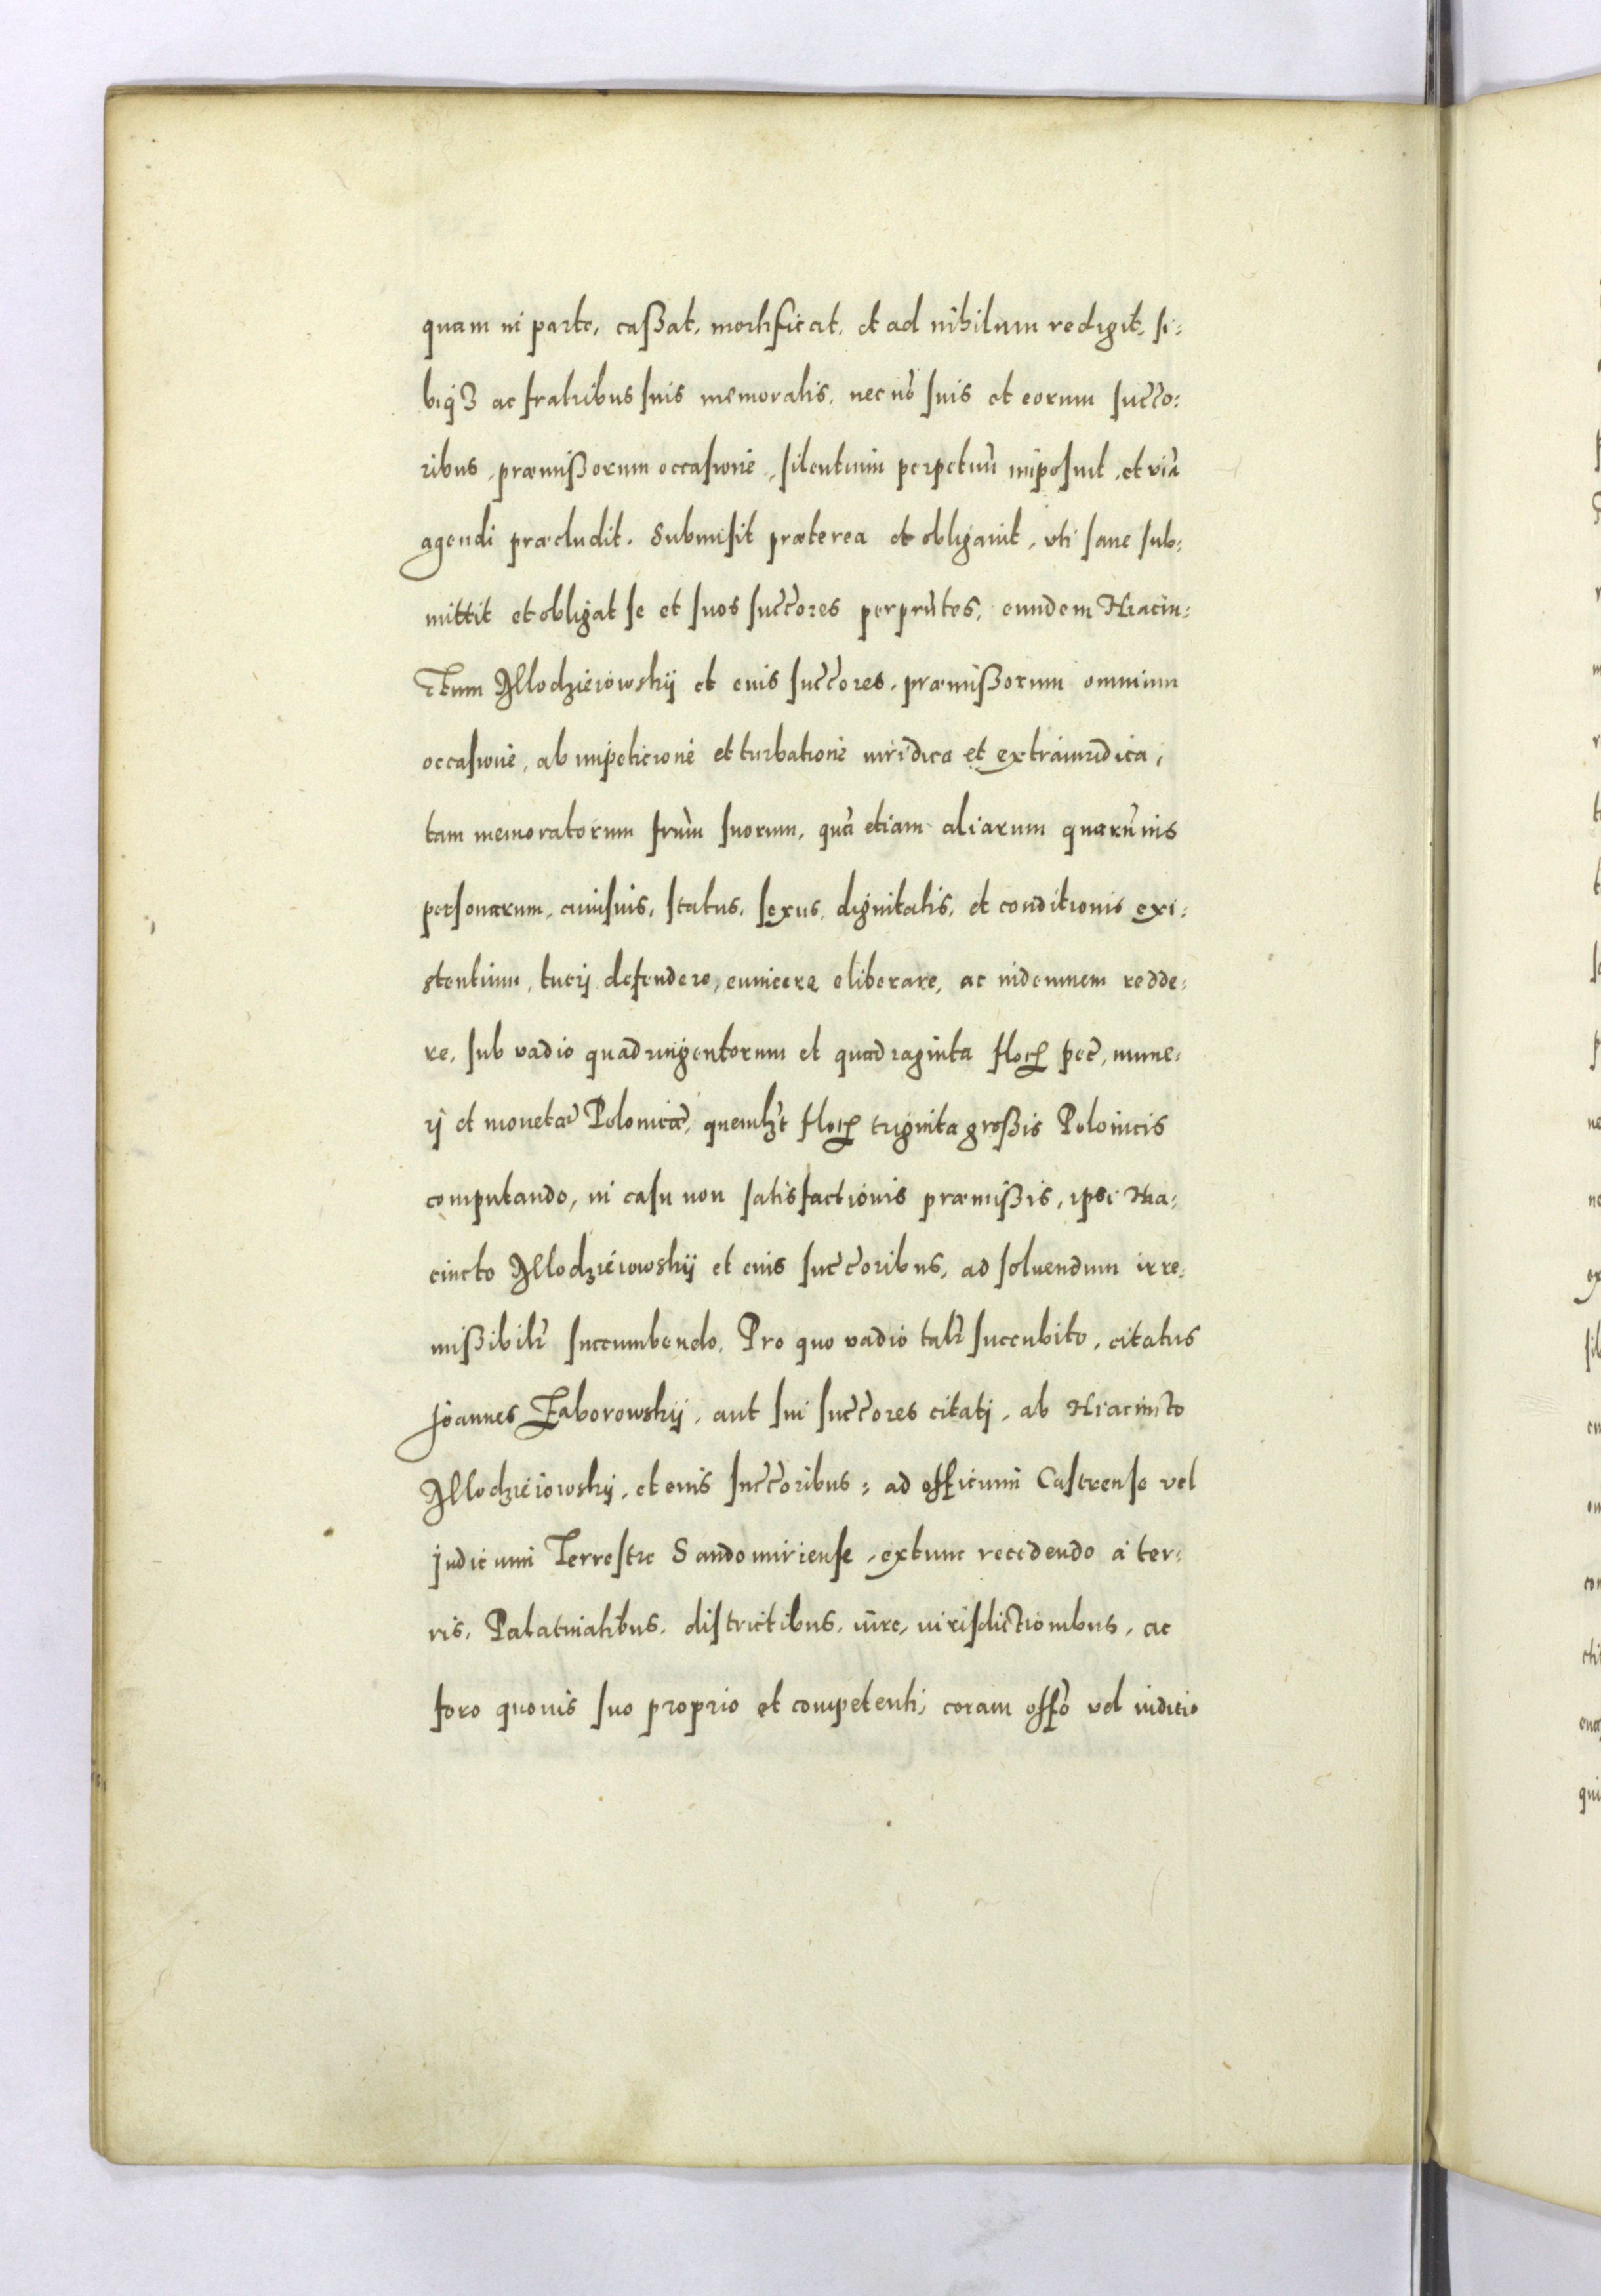 quam in parte, caßat, mortificat, et ad nihilum redigit, si:
biq3 ac fratribus suis memoratis, nec nõ suis et eorum succo:
ribus, præmißorum occasione, silentium perpetuũ imposuit, et viã
agendi præcludit. Submisit præterea et obligauit, vti sane sub:
mittit et obligat se et suos succores per pñtes, eundem Hiacin:
ctum Mlodzieiowskij et eius succores, præmißorum omnium
occasione, ab impeticione et turbatione iuridica et extraiuridica,
tam memoratorum frũm suorum, quã etiam aliarum quarũuis
personarum, cuiusuis, status, sexus, dignitatis, et conditionis exi:
stentium, tuerj defendere, euincere eliberare, ac indemnem redde:
re, sub vadio quadringentorum et quadraginta flor. pec, nume:
rj et monetæ Polonicæ, quemlzt flor. triginta großis Polonicis
computando, in casu non satisfactionis præmißis, ipsi Hia:
cincto Mlodzieiowskij et eius succoribus, ad soluendum irre:
mißibilr succumbendo. Pro quo vadio talr succubito, citatus
Joannes Zaborowskij, aut sui succores citatj, ab Hiacincto
Mlodzieiowskij, et eius succoribus: ad officium Castrense vel
Judicium Terrestre Sandomiriense, extunc recedendo à ter:
ris, Palatinatibus, districtibus, iure, iurisdictionibus, ac
foro quouis suo proprio et competenti, coram offo vel iuditio